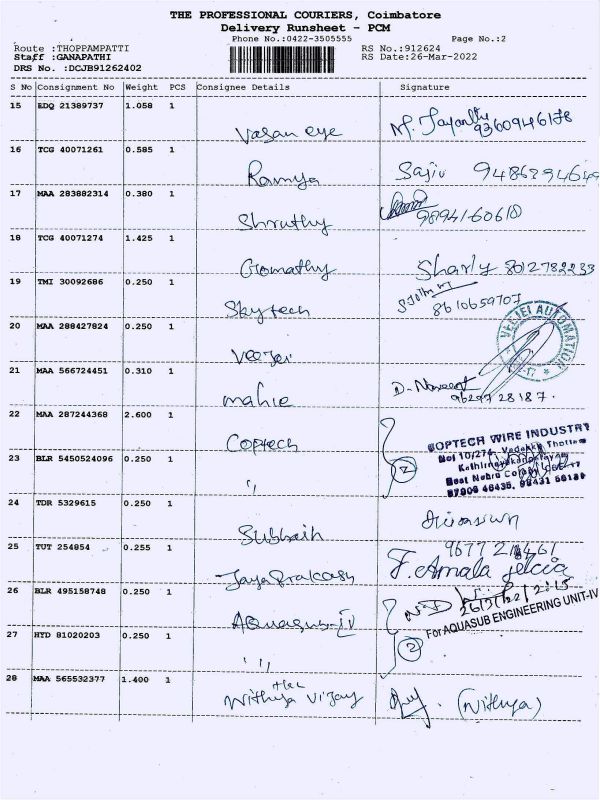 THE PROFESSIONAL COURIERS, Coimbatore
Delivery Runsheet - PCM
Phone No.:0422-3505555 Page No.:2
Route :THOPPAMPATTI RS No.:912624
Staff :GANAPATHI RS Date:26-Mar-2022
DRS No. :DCJB91262402
S No Consignment No Weight PCS Consignee Details Signature
15 EDQ 21389737 1.058 1
Vasan eye M. Jayanthi 9360946178
16 TCG 40071261 0.585 1
Ramya Sajiv 9486294649
17 MAA 283882314 0.380 1
Shruthy 9894160618
18 TCG 40071274 1.425 1
Gomathy Sharly 8012782233
19 TMI 30092686 0.250 1
Skytech 8610659707
20 MAA 288427824 0.250 1
Veejei VEEJEI AUTOMATION
21 MAA 566724451 0.310 1
mahie D. Naveen 9629728187.
22 MAA 287244368 2.600 1
Coptech COPTECH WIRE INDUSTRY
No: 10/274, Vadakku Thottam
23 BLR 5450524096 0.250 1
" 2
24 TDR 5329615 0.250 1
Subhaih
25 TUT 254854 0.255 1
Jayaprakash F. Amala jelcia
26 BLR 495158748 0.250 1
Aquasub-IV 26/3/22/
For AQUASUB ENGINEERING UNIT-IV
27 HYD 81020203 0.250 1
" 2
28 MAA 565532377 1.400 1
Nithya Vijay (Nithya)